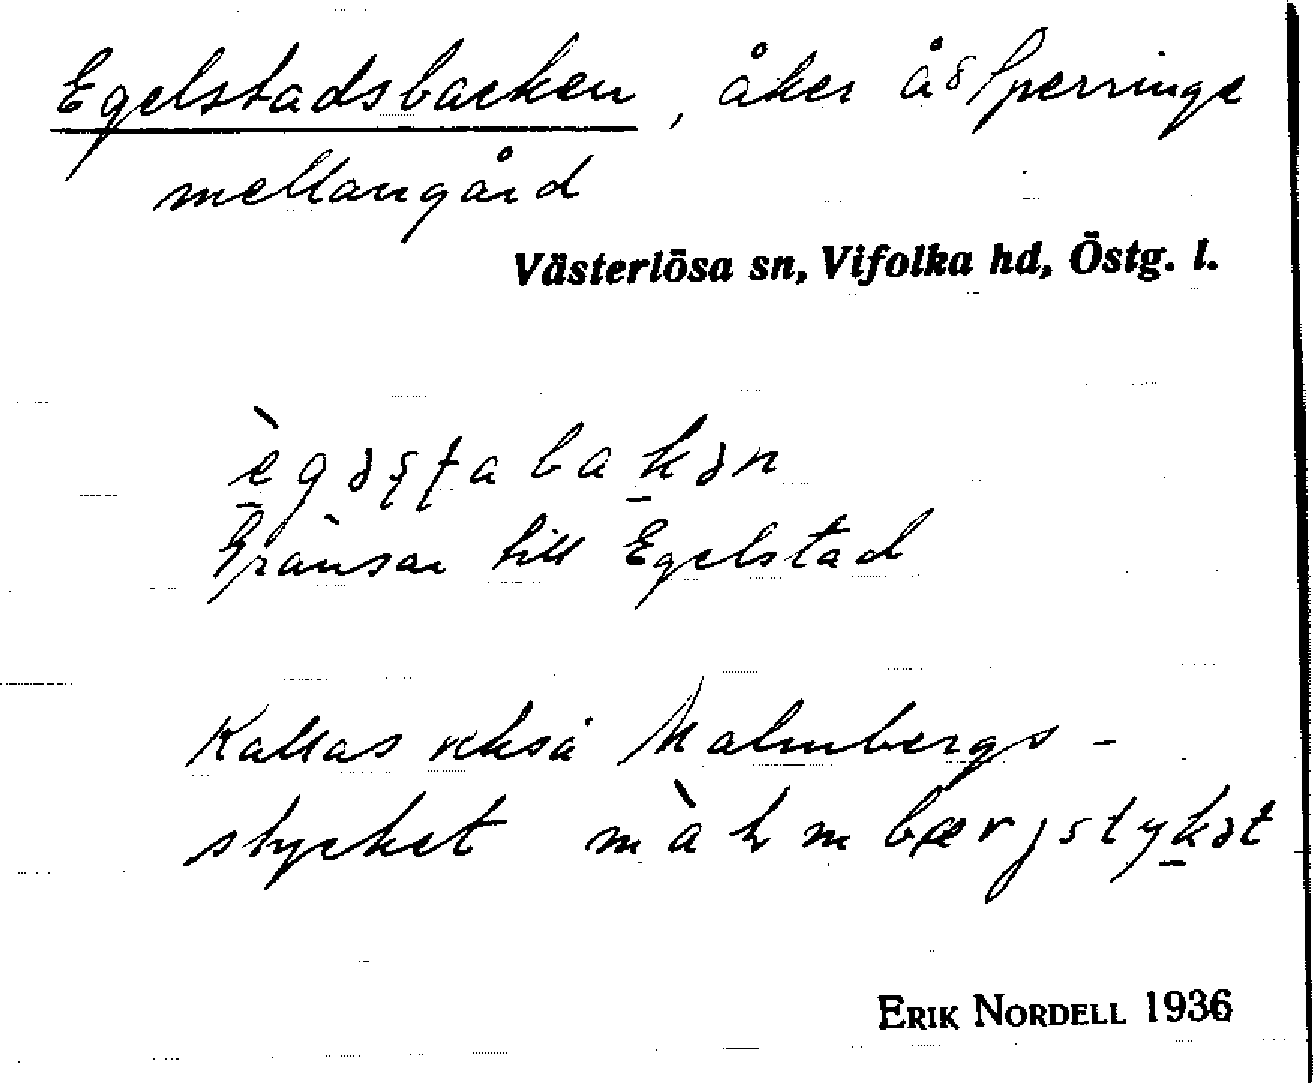 Egelstadsbacken, åker å Sperringe
mellangård
Västerlösa sn, Vifolka hd, Östg. l.
Gränsar till Egelstad
Kallas också Malmbergs-
stycket
ERIK NORDELL 1936